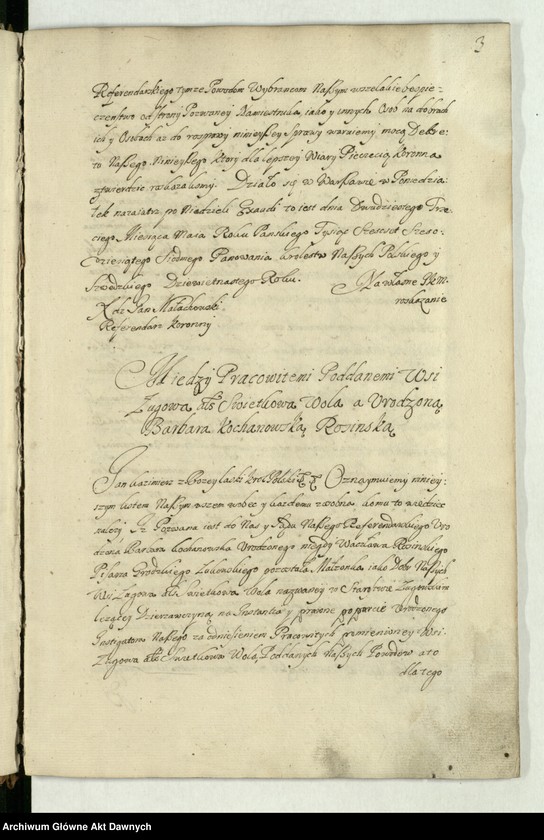 3
Referendarskiego tymże Powodom Wybrancom Naszym wszelakie bespie-
czenstwo od strony Pozwaney Namiestnika, iako y innych Osob na dobrach
ich y Osobach aż do rosprawy ninieyszey Sprawy waruiemy mocą Dekre-
tu Naszego Ninieyszego ktory dla lepszey Wiary Pieczęcią Koronną
ztwierdzić roskazalismy. Działo się w Warszawie w Poniedzia-
łek nazaiutrz po Niedzieli Exaudi to iest dnia Dwudziestego Trze-
ciego Miesiąca Maia Roku Panskiego Tysiąc Szescset Szesc-
dziesiątego Siodmego Panowania Krolestw Naszych Polskiego y
Szwedzkiego Dziewietnastego Roku. Na własne JKM
roskazanie
X dz Jan Małachowski
Referendarz Koronny
Między Pracowitemi Poddanemi Wsi
Zugowa als Swietlikowa Wola a Urodzoną
Barbarą Kochanowską Rosinską
Jan Kazimierz z Bozey łaski Krol Polski Oznaymuiemy niniey-
szym listem Naszym wszem wobec y kazdemu zosobna, komu to wiedziec
nalezy Iz Pozwana iest do Nas y Sądu Naszego Referendarskiego Uro-
dzona Barbara Kochanowska Urodzonego niegdy Wacława Rosinskiego
Pisarza Grodzkiego pozostała Małzonka iako Dobr Naszych
Wsi Zugowa als Swietlikowa Wola nazwaney w Starostwie
lezącey Dzierzawczyną na Instantią y prawne poparcie Urodzonego
Instigatora Naszego za doniesieniem Pracowitych pomienioney Wsi
Zugowa als Swietlikowa Wola Poddanych Naszych Powodow a to
dla tego
Archiwum Główne Akt Dawnych